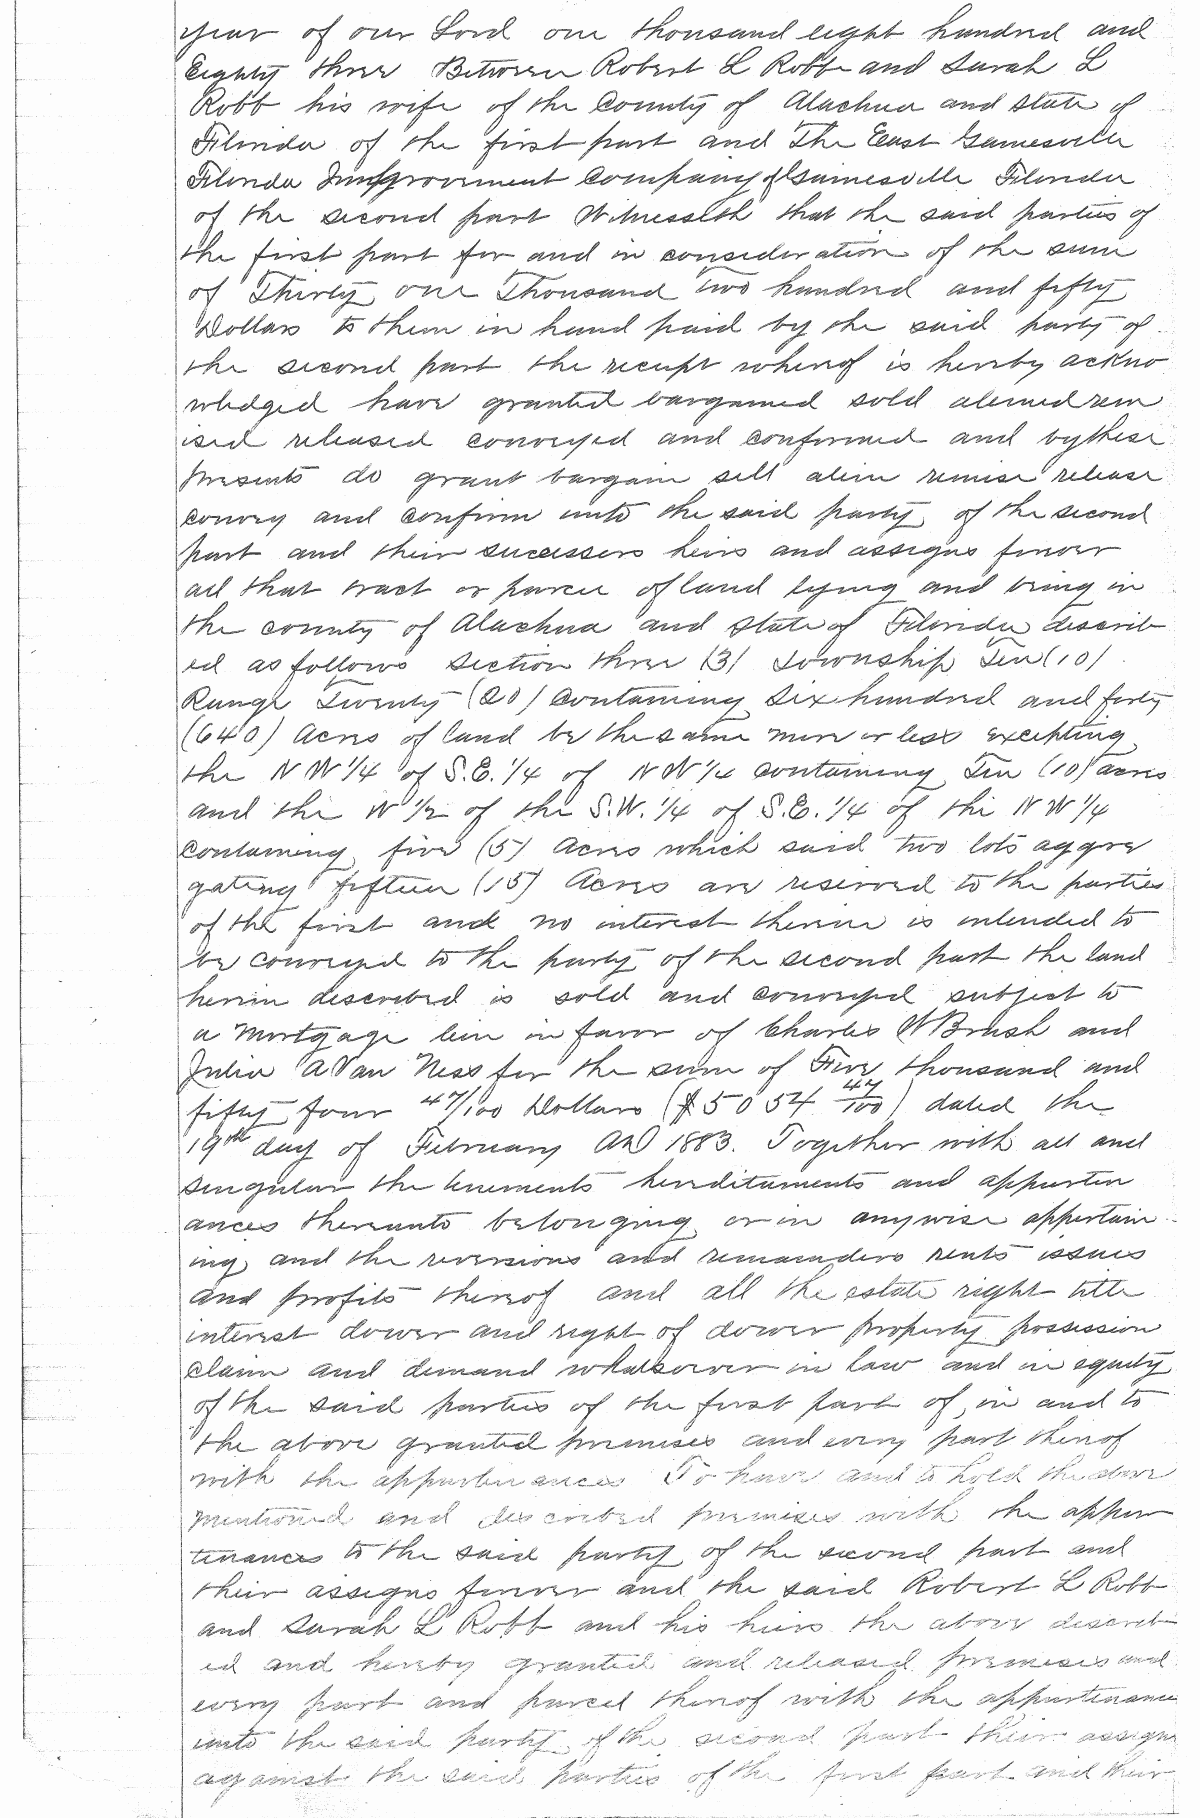 year of our Lord one thousand eight hundred and
Eighty three Between Robert L Robb and Sarah L
Robb his wife of the County of Alachua and state of
Florida of the first part and The East Gainesville
Florida Improvement Company of Gainesville Florida
of the second part Witnesseth that the said parties of
the first part for and in consideration of the sum
of Thirty one Thousand Two hundred and fifty
Dollars to them in hand paid by the said party of
the second part the receipt whereof is hereby ackno
wledged have granted bargained sold aliened rem
ised released conveyed and confirmed and by these
presents do grant bargain sell alien remise release
convey and confirm unto the said party of the second
part and their successers heirs and assigns forever
all that tract or parcel of land lying and being in
the county of Alachua and state of Florida describ
ed as follows section three (3) Township Ten (10)
Range Twenty (20) containing Six hundred and forty
(640) Acres of land be the same more or less excepting
the N W 1/4 of S.E. 1/4 of N W 1/4 containing Ten (10) acres
and the N 1/2 of the S.W. 1/4 of S.E. 1/4 of the N W 1/4
containing five (5) Acres which said two lots aggre
gating fifteen (15) Acres are reserved to the parties
of the first and no interest therein is intended to
be conveyed to the party of the second part the land
herein described is sold and conveyed subject to
a Mortgage lien in favor of Charles W Brush and
Julia A Van Ness for the sum of Five thousand and
fifty four 47/100 Dollars ($5054 47/100) dated the
19th day of February AD 1883. Together with all and
singular the tenements hereditaments and appurten
ances thereunto belonging or in anywise appertain
ing and the reversions and remainders rents issues
and profits thereof and all the estate right title
interest dower and right of dower property possession
claim and demand whatsoever in law and in equity
of the said parties of the first part of, in and to
the above granted premises and every part thereof
with the appurtenances To have and to hold the above
mentioned and described premises with the appur
tenances to the said party of the second part and
their assigns forever and the said Robert L Robb
and Sarah L Robb and his heirs the above describ
ed and hereby granted and released premises and
every part and parcel thereof with the appurtenance
unto the said party of the second part their assigns
against the said parties of the first part and their